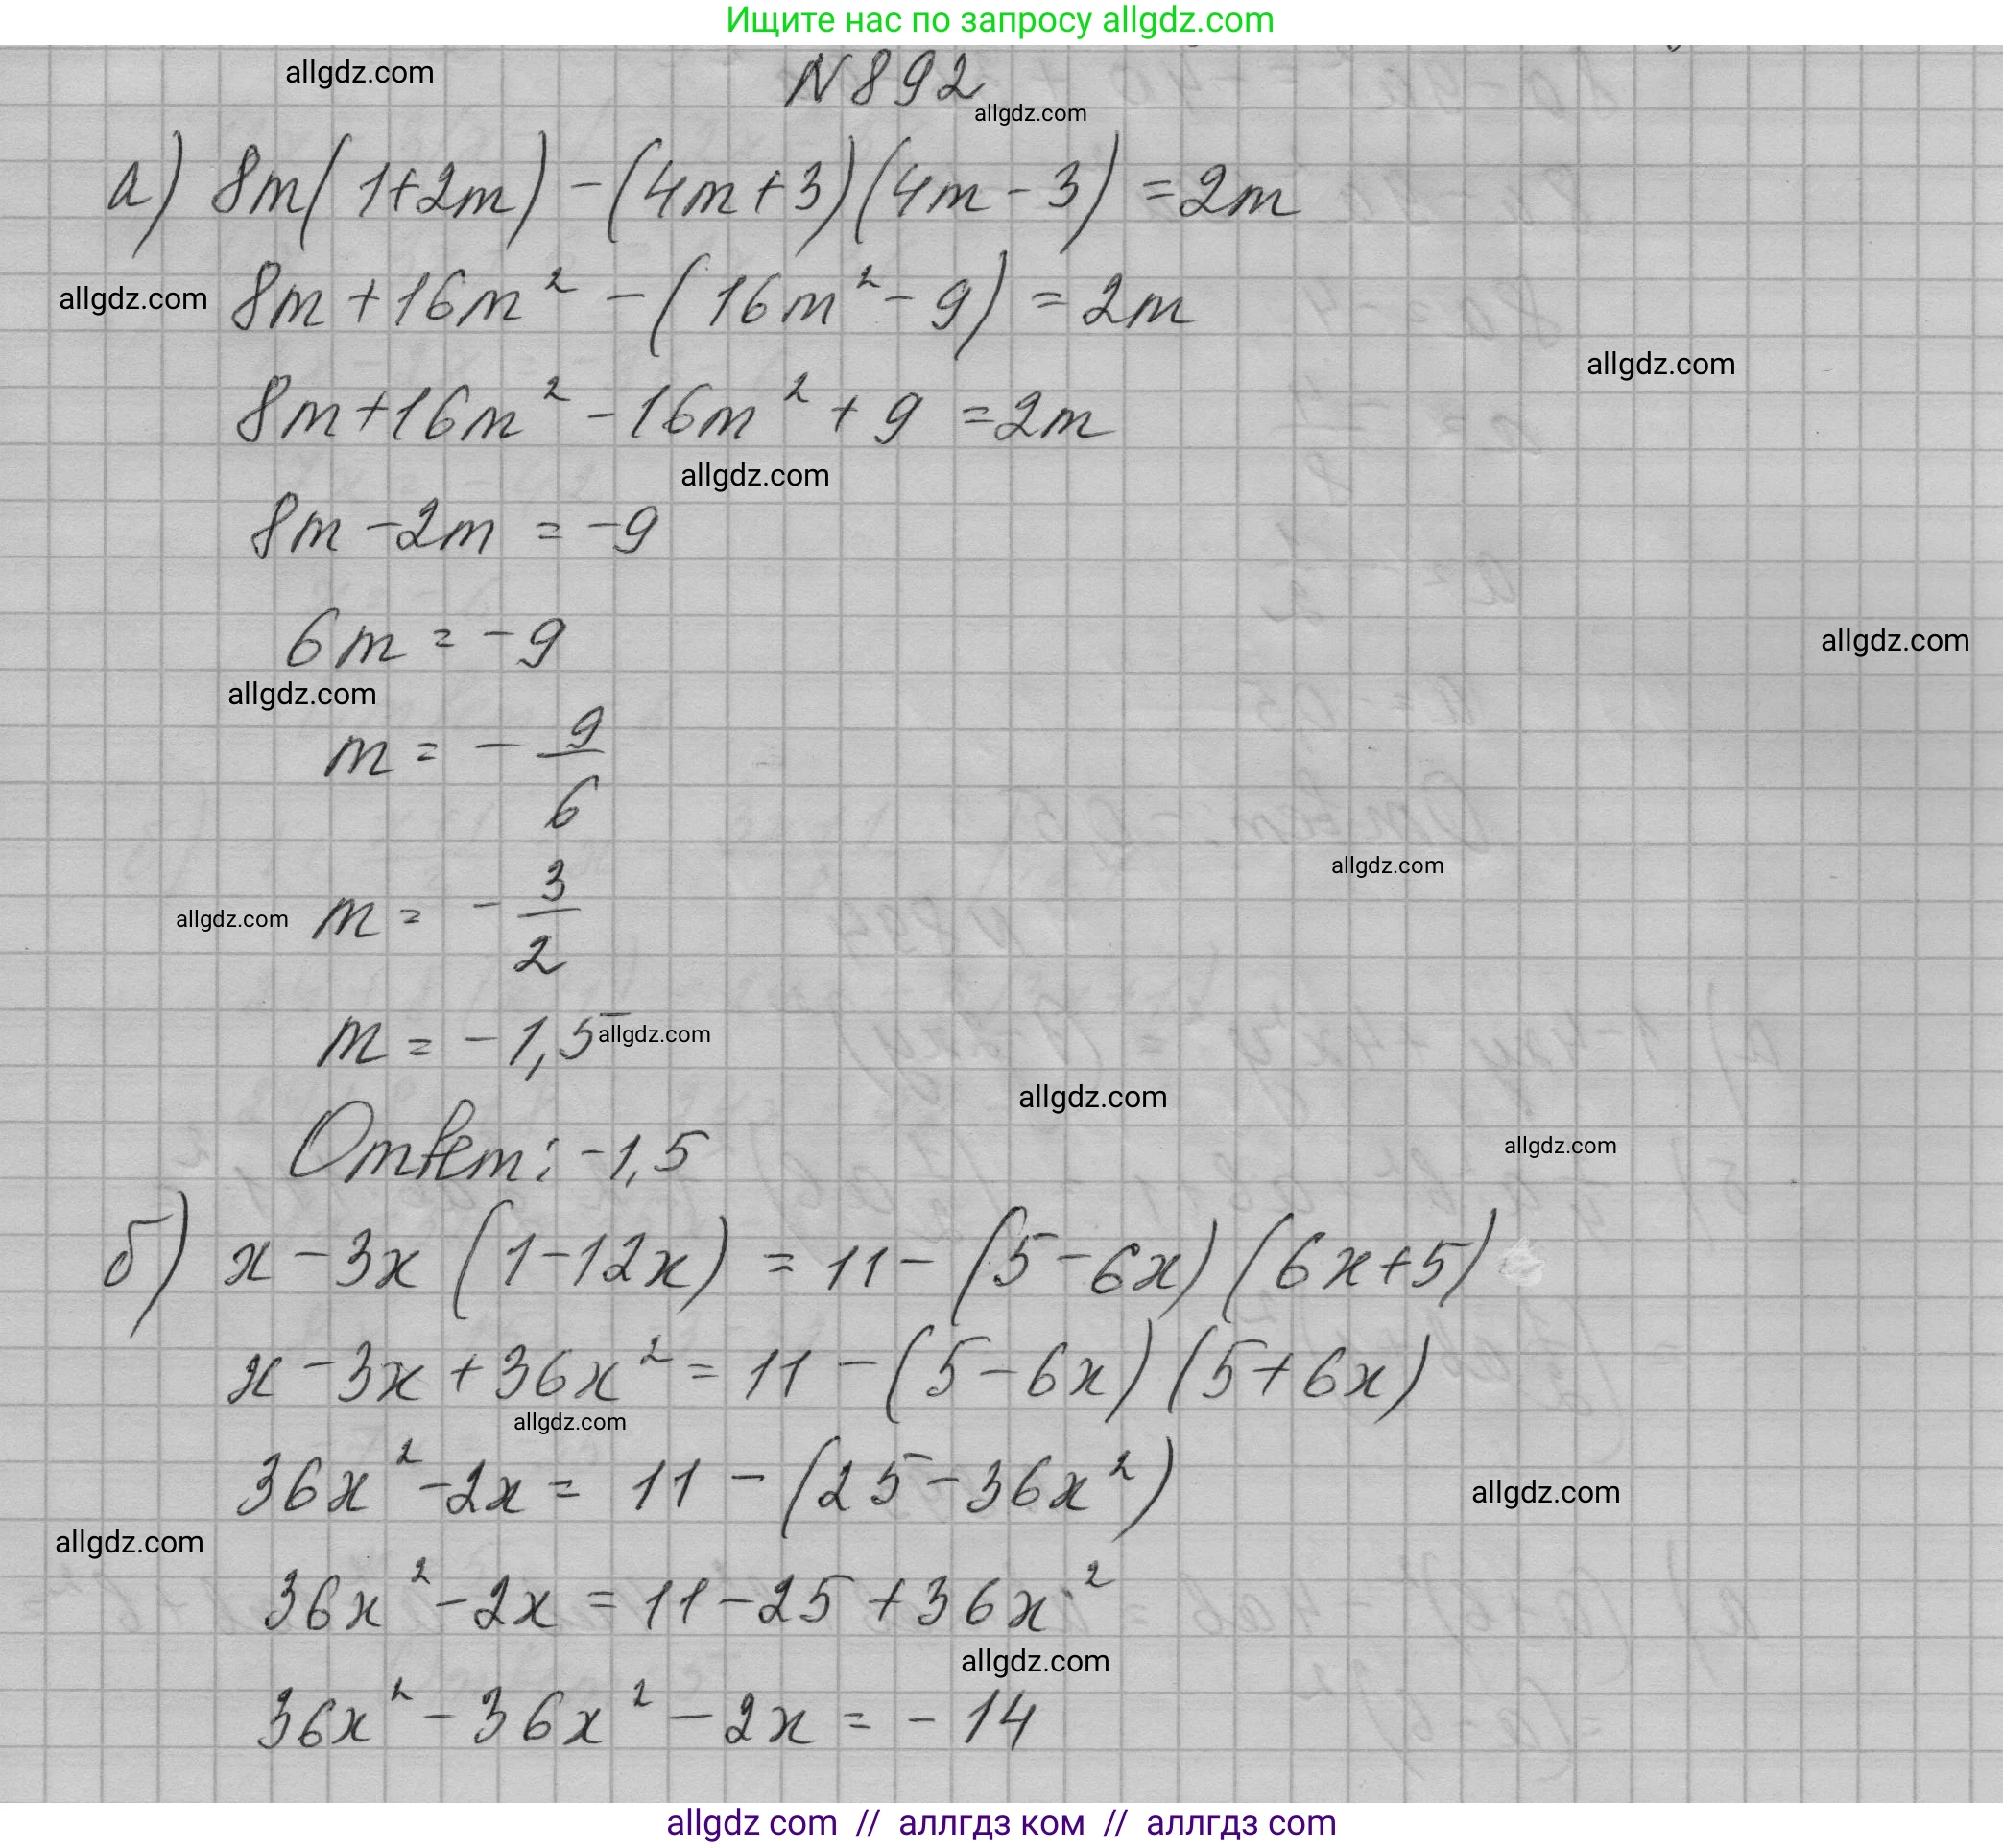 Ищите нас по запросу allgdz.com
allgdz.com
N 892
allgdz.com
а) 8m(1+2m) - (4m+3)(4m-3) = 2m
allgdz.com
8m + 16m² - (16m² - 9) = 2m
allgdz.com
8m + 16m² - 16m² + 9 = 2m
allgdz.com
8m - 2m = -9
6m = -9
allgdz.com
allgdz.com
m = - 9/6
allgdz.com
m = - 3/2
allgdz.com
m = -1,5
allgdz.com
allgdz.com
Ответ: -1,5
allgdz.com
б) x - 3x (1-12x) = 11 - (5-6x)(6x+5)
x - 3x + 36x² = 11 - (5-6x)(5+6x)
allgdz.com
36x² - 2x = 11 - (25 - 36x²)
allgdz.com
allgdz.com
36x² - 2x = 11 - 25 + 36x²
allgdz.com
36x² - 36x² - 2x = -14
allgdz com // аллгдз ком // аллгдз com